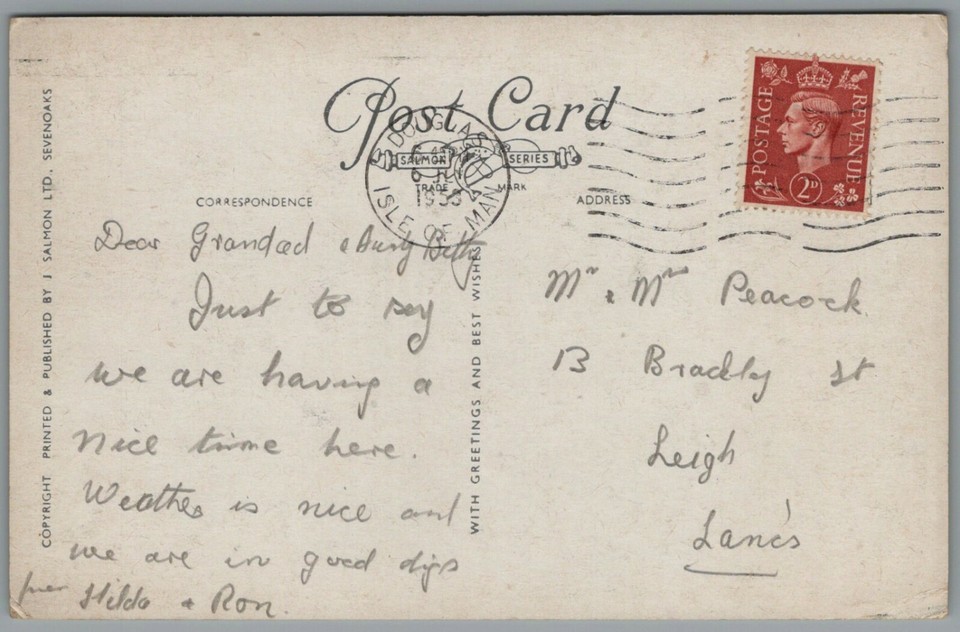 Post Card
SALMON SERIES
TRADE MARK
DOUGLAS
6 JLY
1953
ISLE OF MAN
POSTAGE REVENUE
2D
CORRESPONDENCE
ADDRESS
COPYRIGHT PRINTED & PUBLISHED BY J SALMON LTD. SEVENOAKS
WITH GREETINGS AND BEST WISHES
Dear Grandad & Betty
Just to say
we are having a
nice time here.
Weather is nice and
we are in good digs
from Hilda & Ron.
Mr & Mrs Peacock
13 Bradley St
Leigh
Lancs